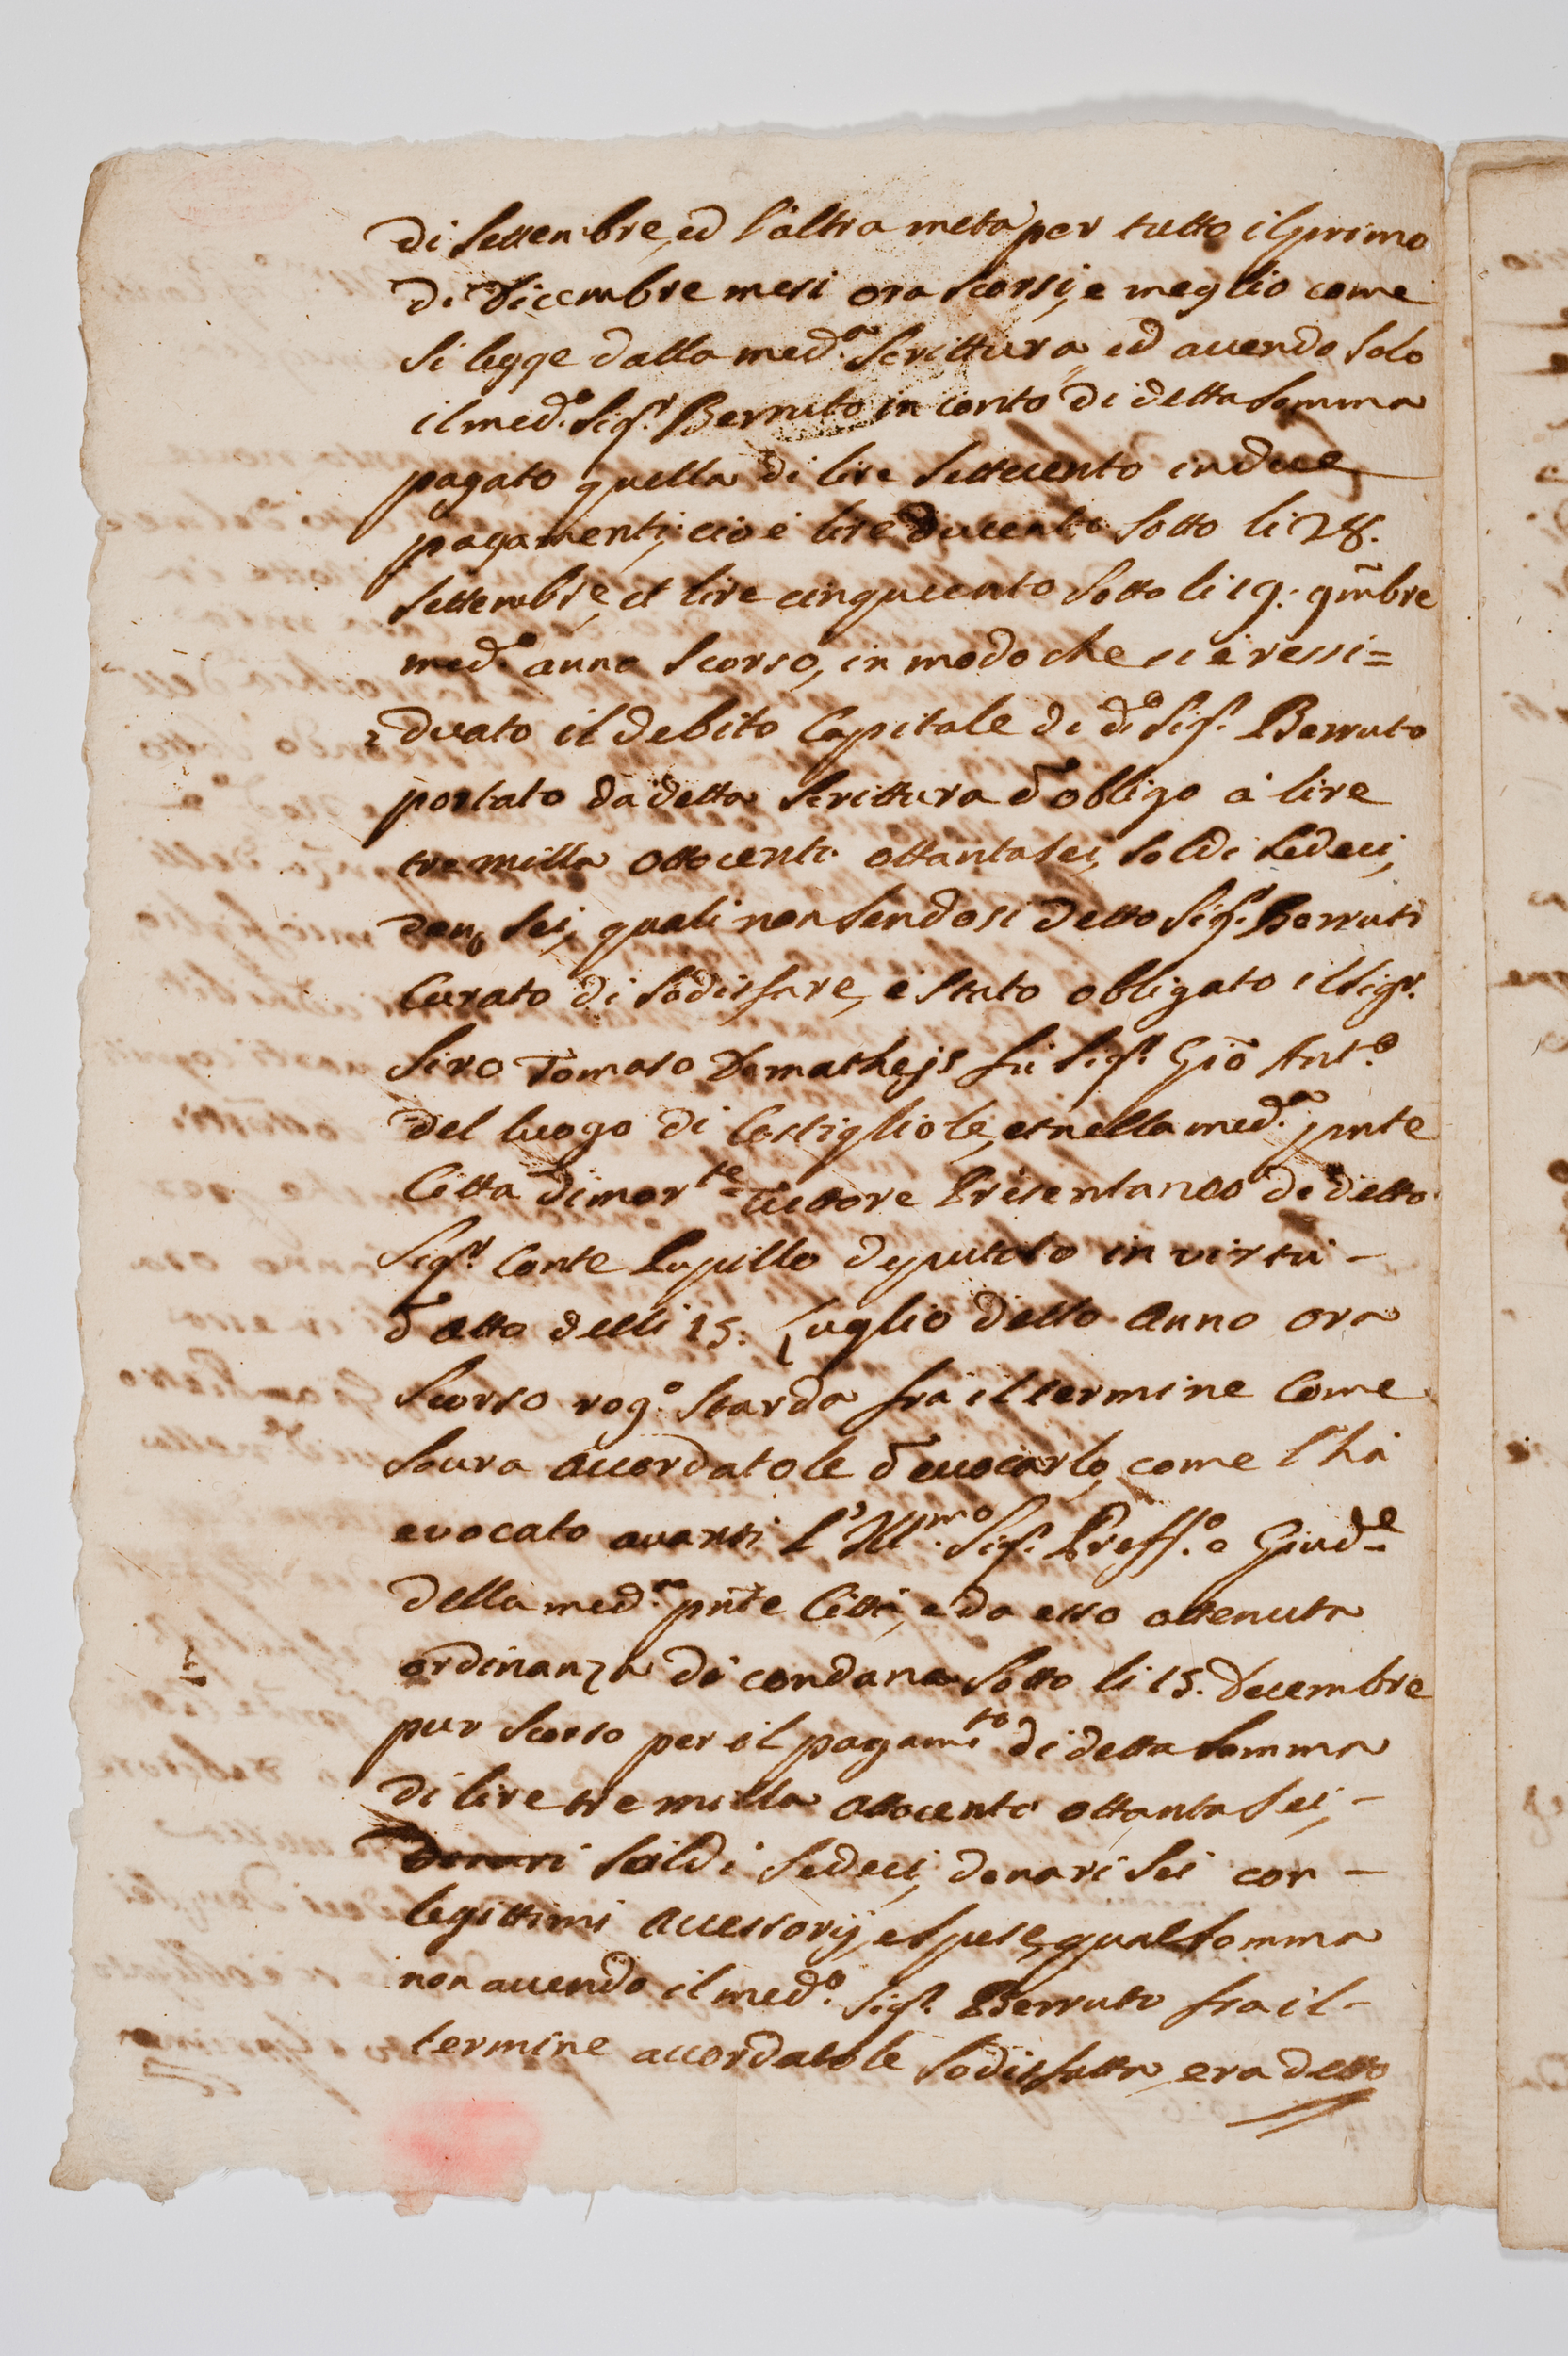 di Settembre, ed l'altra metà per tutto il primo
di Dicembre mesi ora scorsi, e meglio come
si legge dalla med.a Scrittura, ed avendo solo
il med.o Sig.r Berruto in conto di detta somma
pagato quella di lire settecento in due
pagamenti, cioè lire ducento sotto li 28.
Settembre, et lire cinquecento sotto li 19: 9mbre
med.o anno scorso, in modo che si è ressi=
duato il debito Capitale di d.o Sig.r Berruto
portato da detta Scrittura d'obligo à lire
tre milla ottocento ottantasei, soldi sedeci,
den. sei, quali non sendosi detto Sig.r Berruti
Curato di sodisfare, è stato obligato il Sig.r
Siro Tomaso Demathejs fù Sig.r Gio Ant.o
del luogo di Costigliole, et nella med.a pnte
Città dimor.te Tuttore Presentaneo di detto
Sig.r Conte Pupillo deputato in virtù -
d'atto delli 15. Luglio detto anno ora
scorso rog.o Starda frà il termine Come
sovra accordatole d'evocarlo, come l'hà
evocato avanti l'Ill.mo Sig.r Preff.o e Giud.e
della med.a pnte Città, e da esso ottenuta
ordinanza di condana sotto li 15. Decembre
pur scorso per il pagam.to di detta somma
di lire tre milla ottocento ottanta sei, -
Denari soldi sedeci, denari sei con -
legittimi accessorij, e spese, qual somma
non avendo il med.o Sig.r Berruto fra il -
termine accordatole sodisfatta, era detto